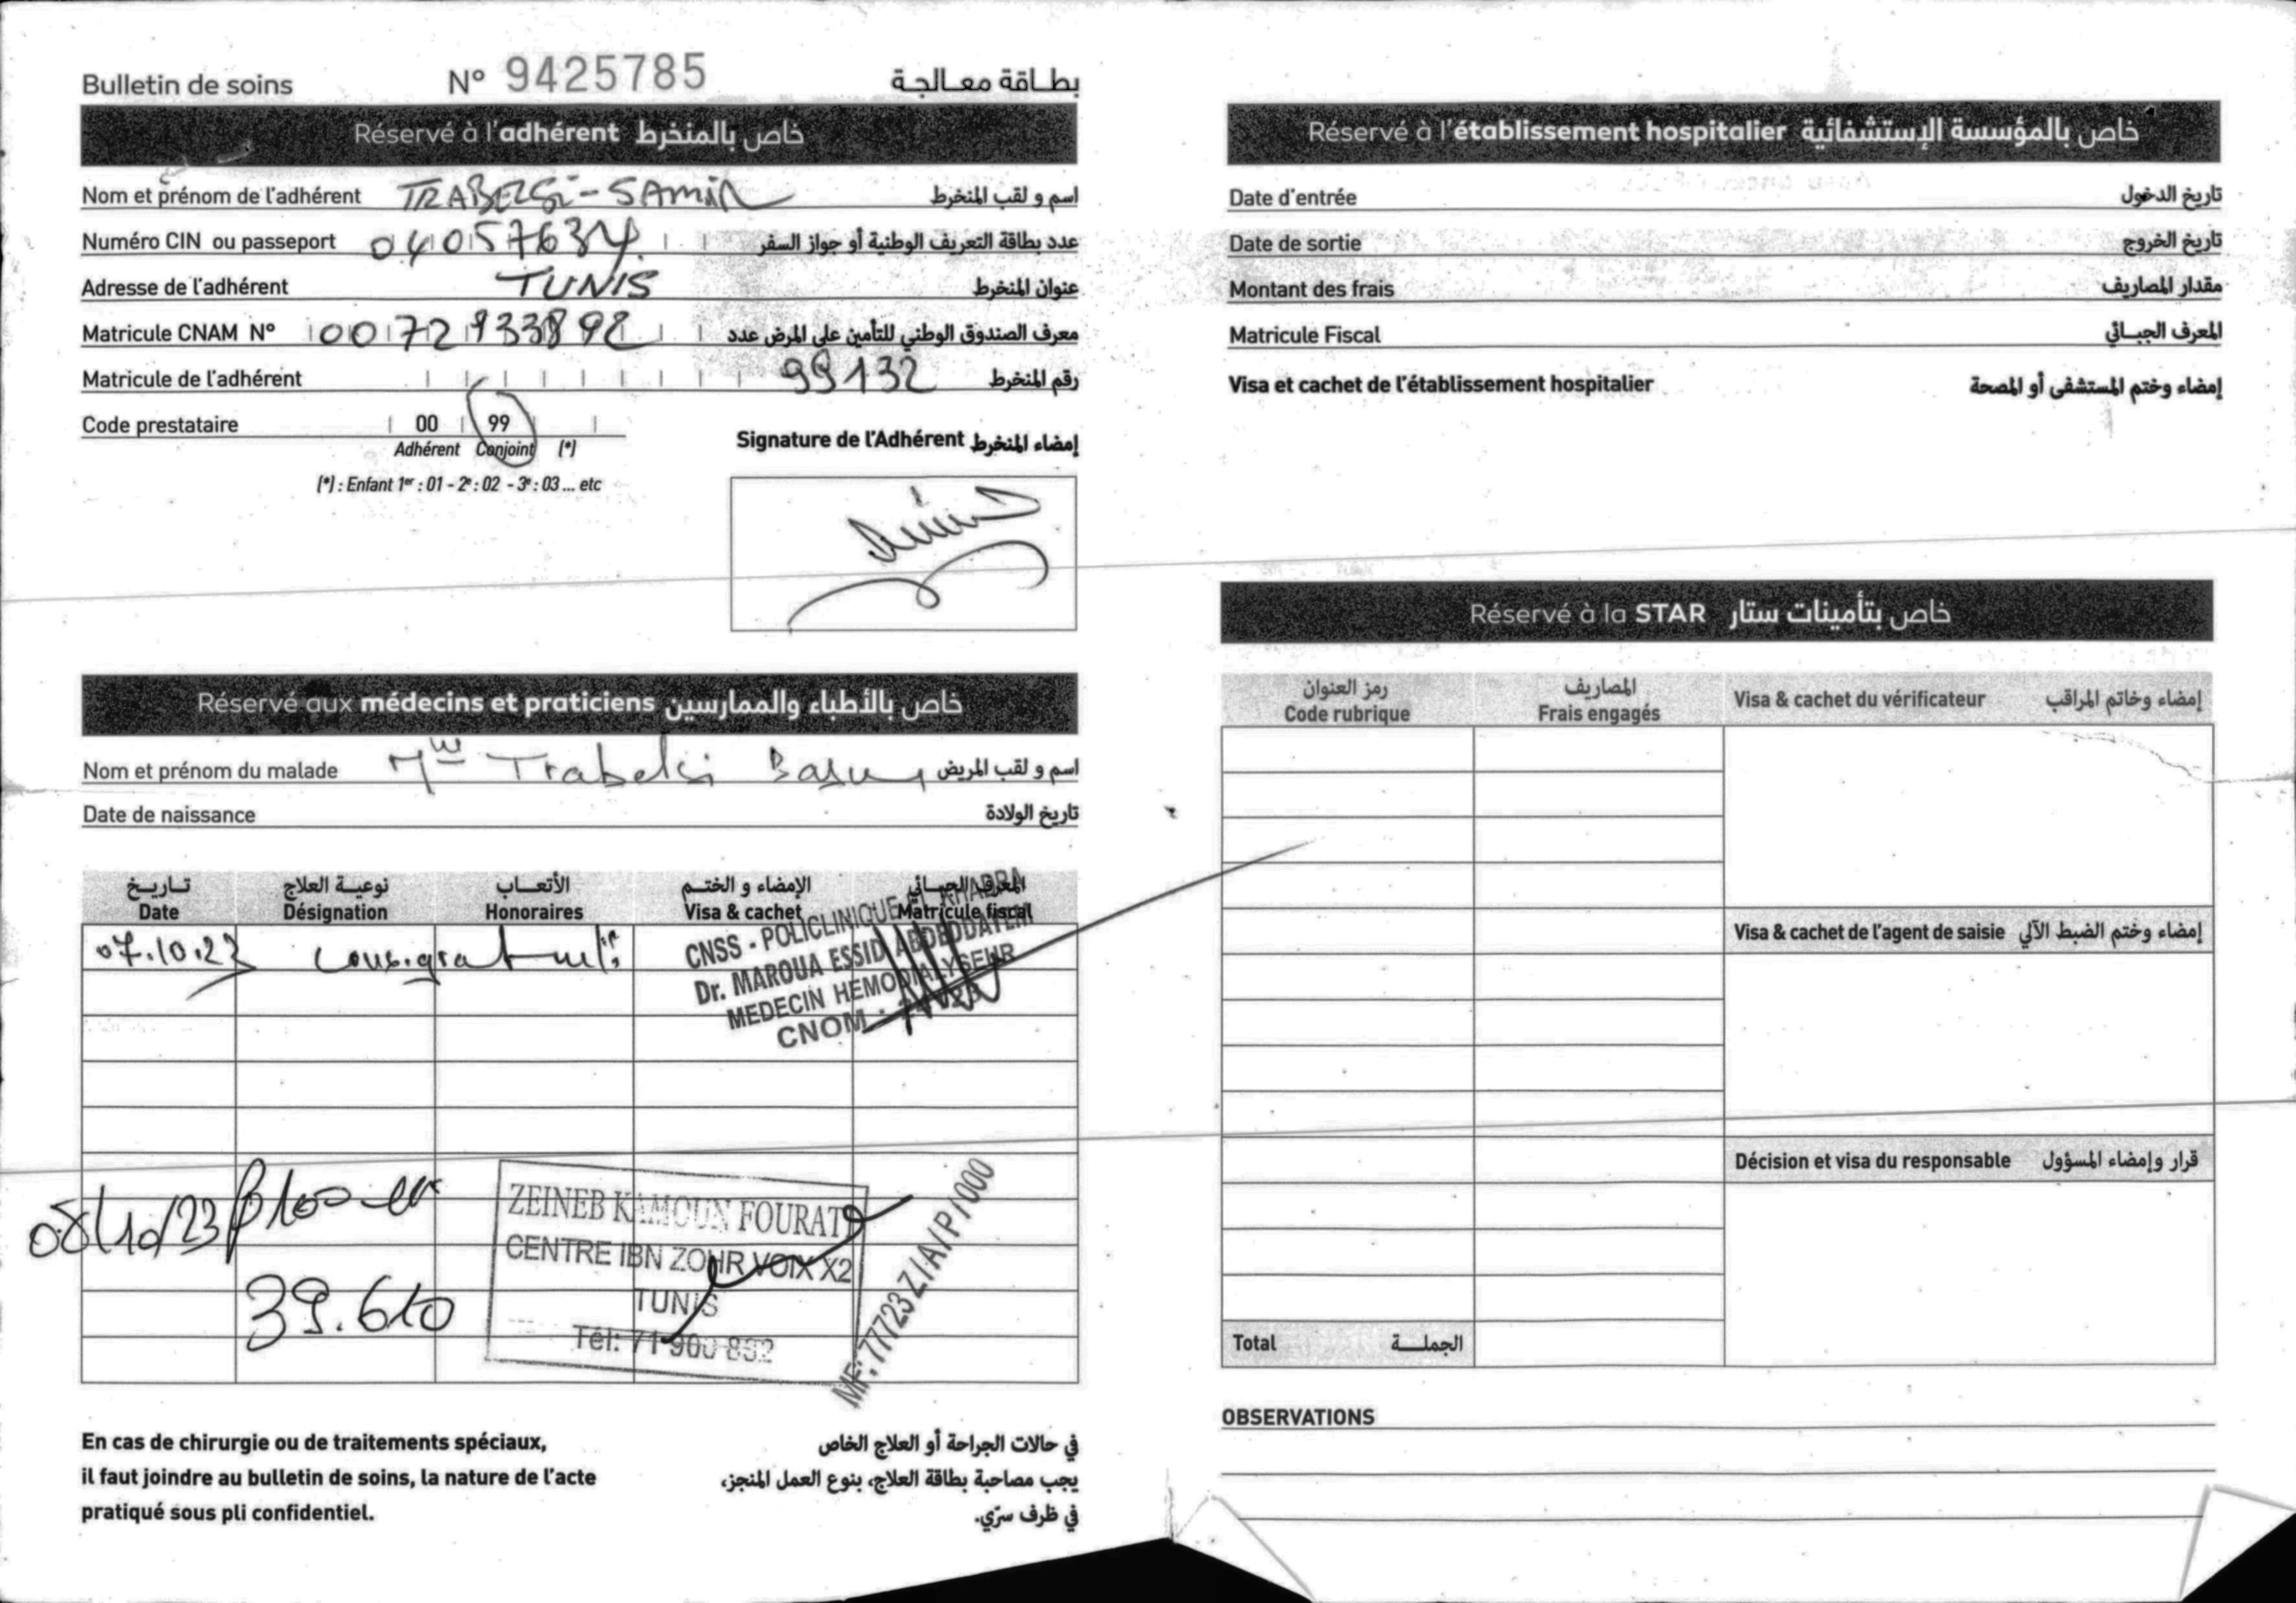 Bulletin de soins N° 9425785 بطاقة معالجة
Réservé à l'adhérent خاص بالمنخرط
Nom et prénom de l'adhérent TRABELSI - SAMIR اسم و لقب المنخرط
Numéro CIN ou passeport 04057634 عدد بطاقة التعريف الوطنية أو جواز السفر
Adresse de l'adhérent TUNIS عنوان المنخرط
Matricule CNAM N° معرف الصندوق الوطني للتأمين على المرض عدد
Matricule de l'adhérent 99132 رقم المنخرط
Code prestataire 00 99
Adhérent Conjoint (*)
(*) : Enfant 1er : 01 - 2e : 02 - 3e : 03 ... etc
Signature de l'Adhérent إمضاء المنخرط
Réservé aux médecins et praticiens خاص بالأطباء والممارسين
Nom et prénom du malade Mme Trabelsi اسم و لقب المريض
Date de naissance تاريخ الولادة
تاريخ نوعية العلاج الأتعاب الإمضاء و الختم المعرف الجبائي
Date Désignation Honoraires Visa & cachet Matricule fiscal
07.10.23
CNSS - POLICLINIQUE EL KHADRA
Dr. MAROUA ESSID ABDEDDAYEM
MEDECIN HEMODIALYSEUR
CNOM :
08/10/23 B100
39.610
ZEINEB KAMOUN FOURATI
CENTRE IBN ZOHR VOIX X2
TUNIS
Tél: 71 900 892
MF: 77723Z/A/P/000
En cas de chirurgie ou de traitements spéciaux,
il faut joindre au bulletin de soins, la nature de l'acte
pratiqué sous pli confidentiel.
في حالات الجراحة أو العلاج الخاص
يجب مصاحبة بطاقة العلاج، بنوع العمل المنجز،
في ظرف سرّي.
Réservé à l'établissement hospitalier خاص بالمؤسسة الإستشفائية
Date d'entrée تاريخ الدخول
Date de sortie تاريخ الخروج
Montant des frais مقدار المصاريف
Matricule Fiscal المعرف الجبائي
Visa et cachet de l'établissement hospitalier إمضاء وختم المستشفى أو المصحة
Réservé à la STAR خاص بتأمينات ستار
رمز العنوان المصاريف
Code rubrique Frais engagés Visa & cachet du vérificateur إمضاء وخاتم المراقب
Visa & cachet de l'agent de saisie إمضاء وختم الضبط الآلي
Décision et visa du responsable قرار وإمضاء المسؤول
Total الجملة
OBSERVATIONS